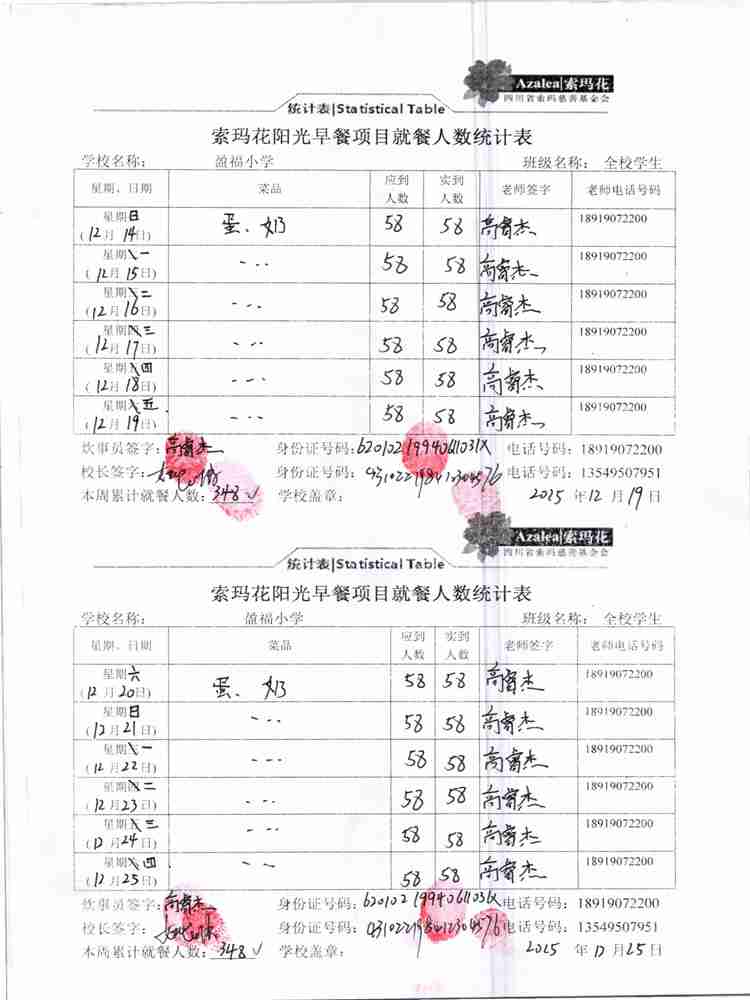 Azalea|索玛花
四川省索玛慈善基金会
统计表|Statistical Table
索玛花阳光早餐项目就餐人数统计表
学校名称： 盈福小学 班级名称： 全校学生
星期、日期 菜品 应到人数 实到人数 老师签字 老师电话号码
星期日 (12月 14日) 蛋、奶 58 58 高睿杰 18919072200
星期一 (12月 15日) - - - 58 58 高睿杰 18919072200
星期二 (12月 16日) - - - 58 58 高睿杰 18919072200
星期三 (12月 17日) - - - 58 58 高睿杰 18919072200
星期四 (12月 18日) - - - 58 58 高睿杰 18919072200
星期五 (12月 19日) - - - 58 58 高睿杰 18919072200
炊事员签字：高睿杰 身份证号码： 电话号码：18919072200
校长签字： 身份证号码： 电话号码：13549507951
本周累计就餐人数：348 ✓ 学校盖章： 2025 年 12 月 19 日
Azalea|索玛花
四川省索玛慈善基金会
统计表|Statistical Table
索玛花阳光早餐项目就餐人数统计表
学校名称： 盈福小学 班级名称： 全校学生
星期、日期 菜品 应到人数 实到人数 老师签字 老师电话号码
星期六 (12月 20日) 蛋、奶 58 58 高睿杰 18919072200
星期日 (12月 21日) - - - 58 58 高睿杰 18919072200
星期一 (12月 22日) - - - 58 58 高睿杰 18919072200
星期二 (12月 23日) - - - 58 58 高睿杰 18919072200
星期三 (12月 24日) - - - 58 58 高睿杰 18919072200
星期四 (12月 25日) - - - 58 58 高睿杰 18919072200
炊事员签字：高睿杰 身份证号码： 电话号码：18919072200
校长签字： 身份证号码： 电话号码：13549507951
本周累计就餐人数：348 ✓ 学校盖章： 2025 年 12 月 25 日